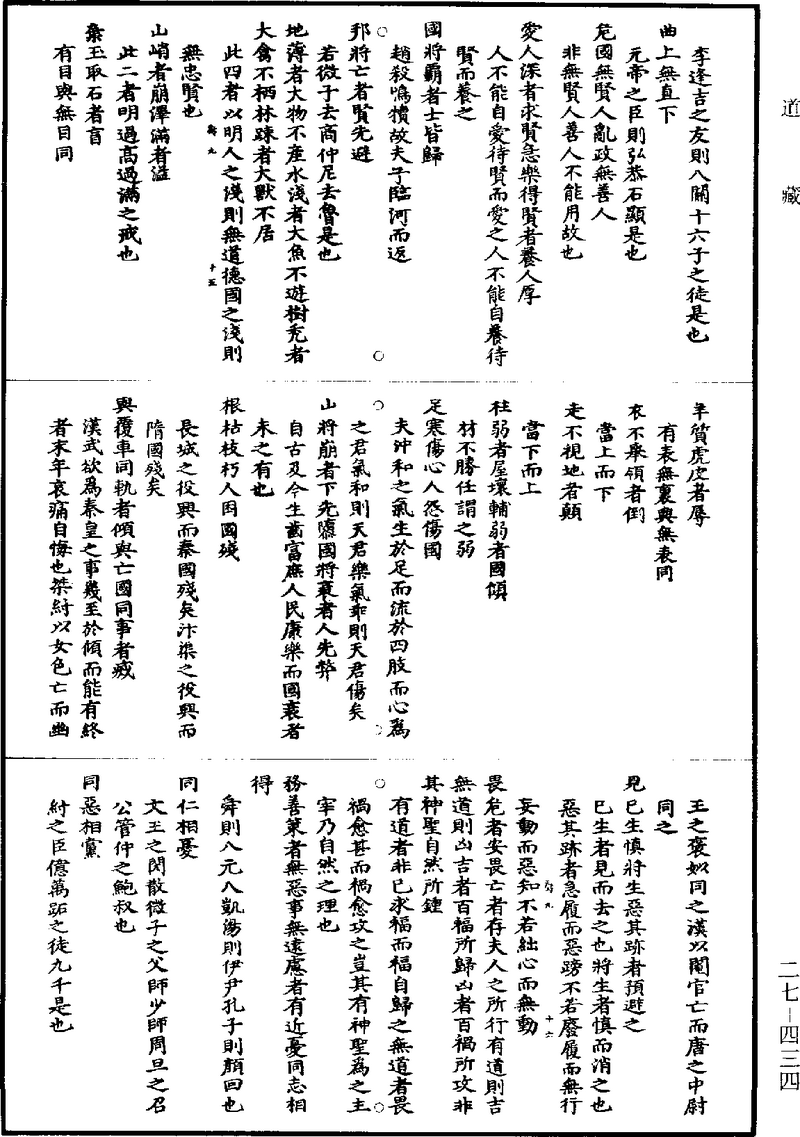 道藏
李逢吉之友則八關十六子之徒是也
曲上無直下
元帝之臣則弘恭石顯是也
危國無賢人亂政無善人
非無賢人善人不能用故也
愛人深者求賢急樂得賢者養人厚
人不能自愛待賢而愛之人不能自養待
賢而養之
國將霸者士皆歸
趙殺鳴犢故夫子臨河而返
邦將亡者賢先避
若微子去商仲尼去魯是也
地薄者大物不產水淺者大魚不遊樹禿者
大禽不栖林踈者大獸不居
此四者以明人之淺則無道德國之淺則
無忠賢也
山峭者崩澤滿者溢
此二者明過高過滿之戒也
棄玉取石者盲
有目與無目同
羊質虎皮者辱
有表無裏與無表同
衣不舉領者倒
當上而下
走不視地者顛
當下而上
柱弱者屋壞輔弱者國傾
材不勝任謂之弱
足寒傷心人怨傷國
夫沖和之氣生於足而流於四肢而心爲
之君氣和則天君樂氣乖則天君傷矣
山將崩者下先隳國將衰者人先弊
自古及今生齒富庶人民康樂而國衰者
未之有也
根枯枝朽人困國殘
長城之役興而秦國殘矣汴渠之役興而
隋國殘矣
與覆車同軌者傾與亡國同事者滅
漢武欲爲秦皇之事幾至於傾而能有終
者末年哀痛自悔也桀紂以女色亡而幽
王之褒姒同之漢以閹官亡而唐之中尉
同之
見已生慎將生惡其跡者預避之
已生者見而去之也將生者慎而消之也
惡其跡者急履而惡踏不若廢履而無行
妄動而惡知不若絀心而無動
畏危者安畏亡者存夫人之所行有道則吉
無道則凶吉者百福所歸凶者百禍所攻非
其神聖自然所鍾
有道者非己求福而福自歸之無道者畏
禍愈甚而禍愈攻之豈其有神聖爲之主
宰乃自然之理也
務善策者無惡事無遠慮者有近憂同志相
得
舜則八元八凱湯則伊尹孔子則顏回也
同仁相憂
文王之閎散微子之父師少師周旦之召
公管仲之鮑叔也
同惡相黨
紂之臣億萬跖之徒九千是也
二七-四三四